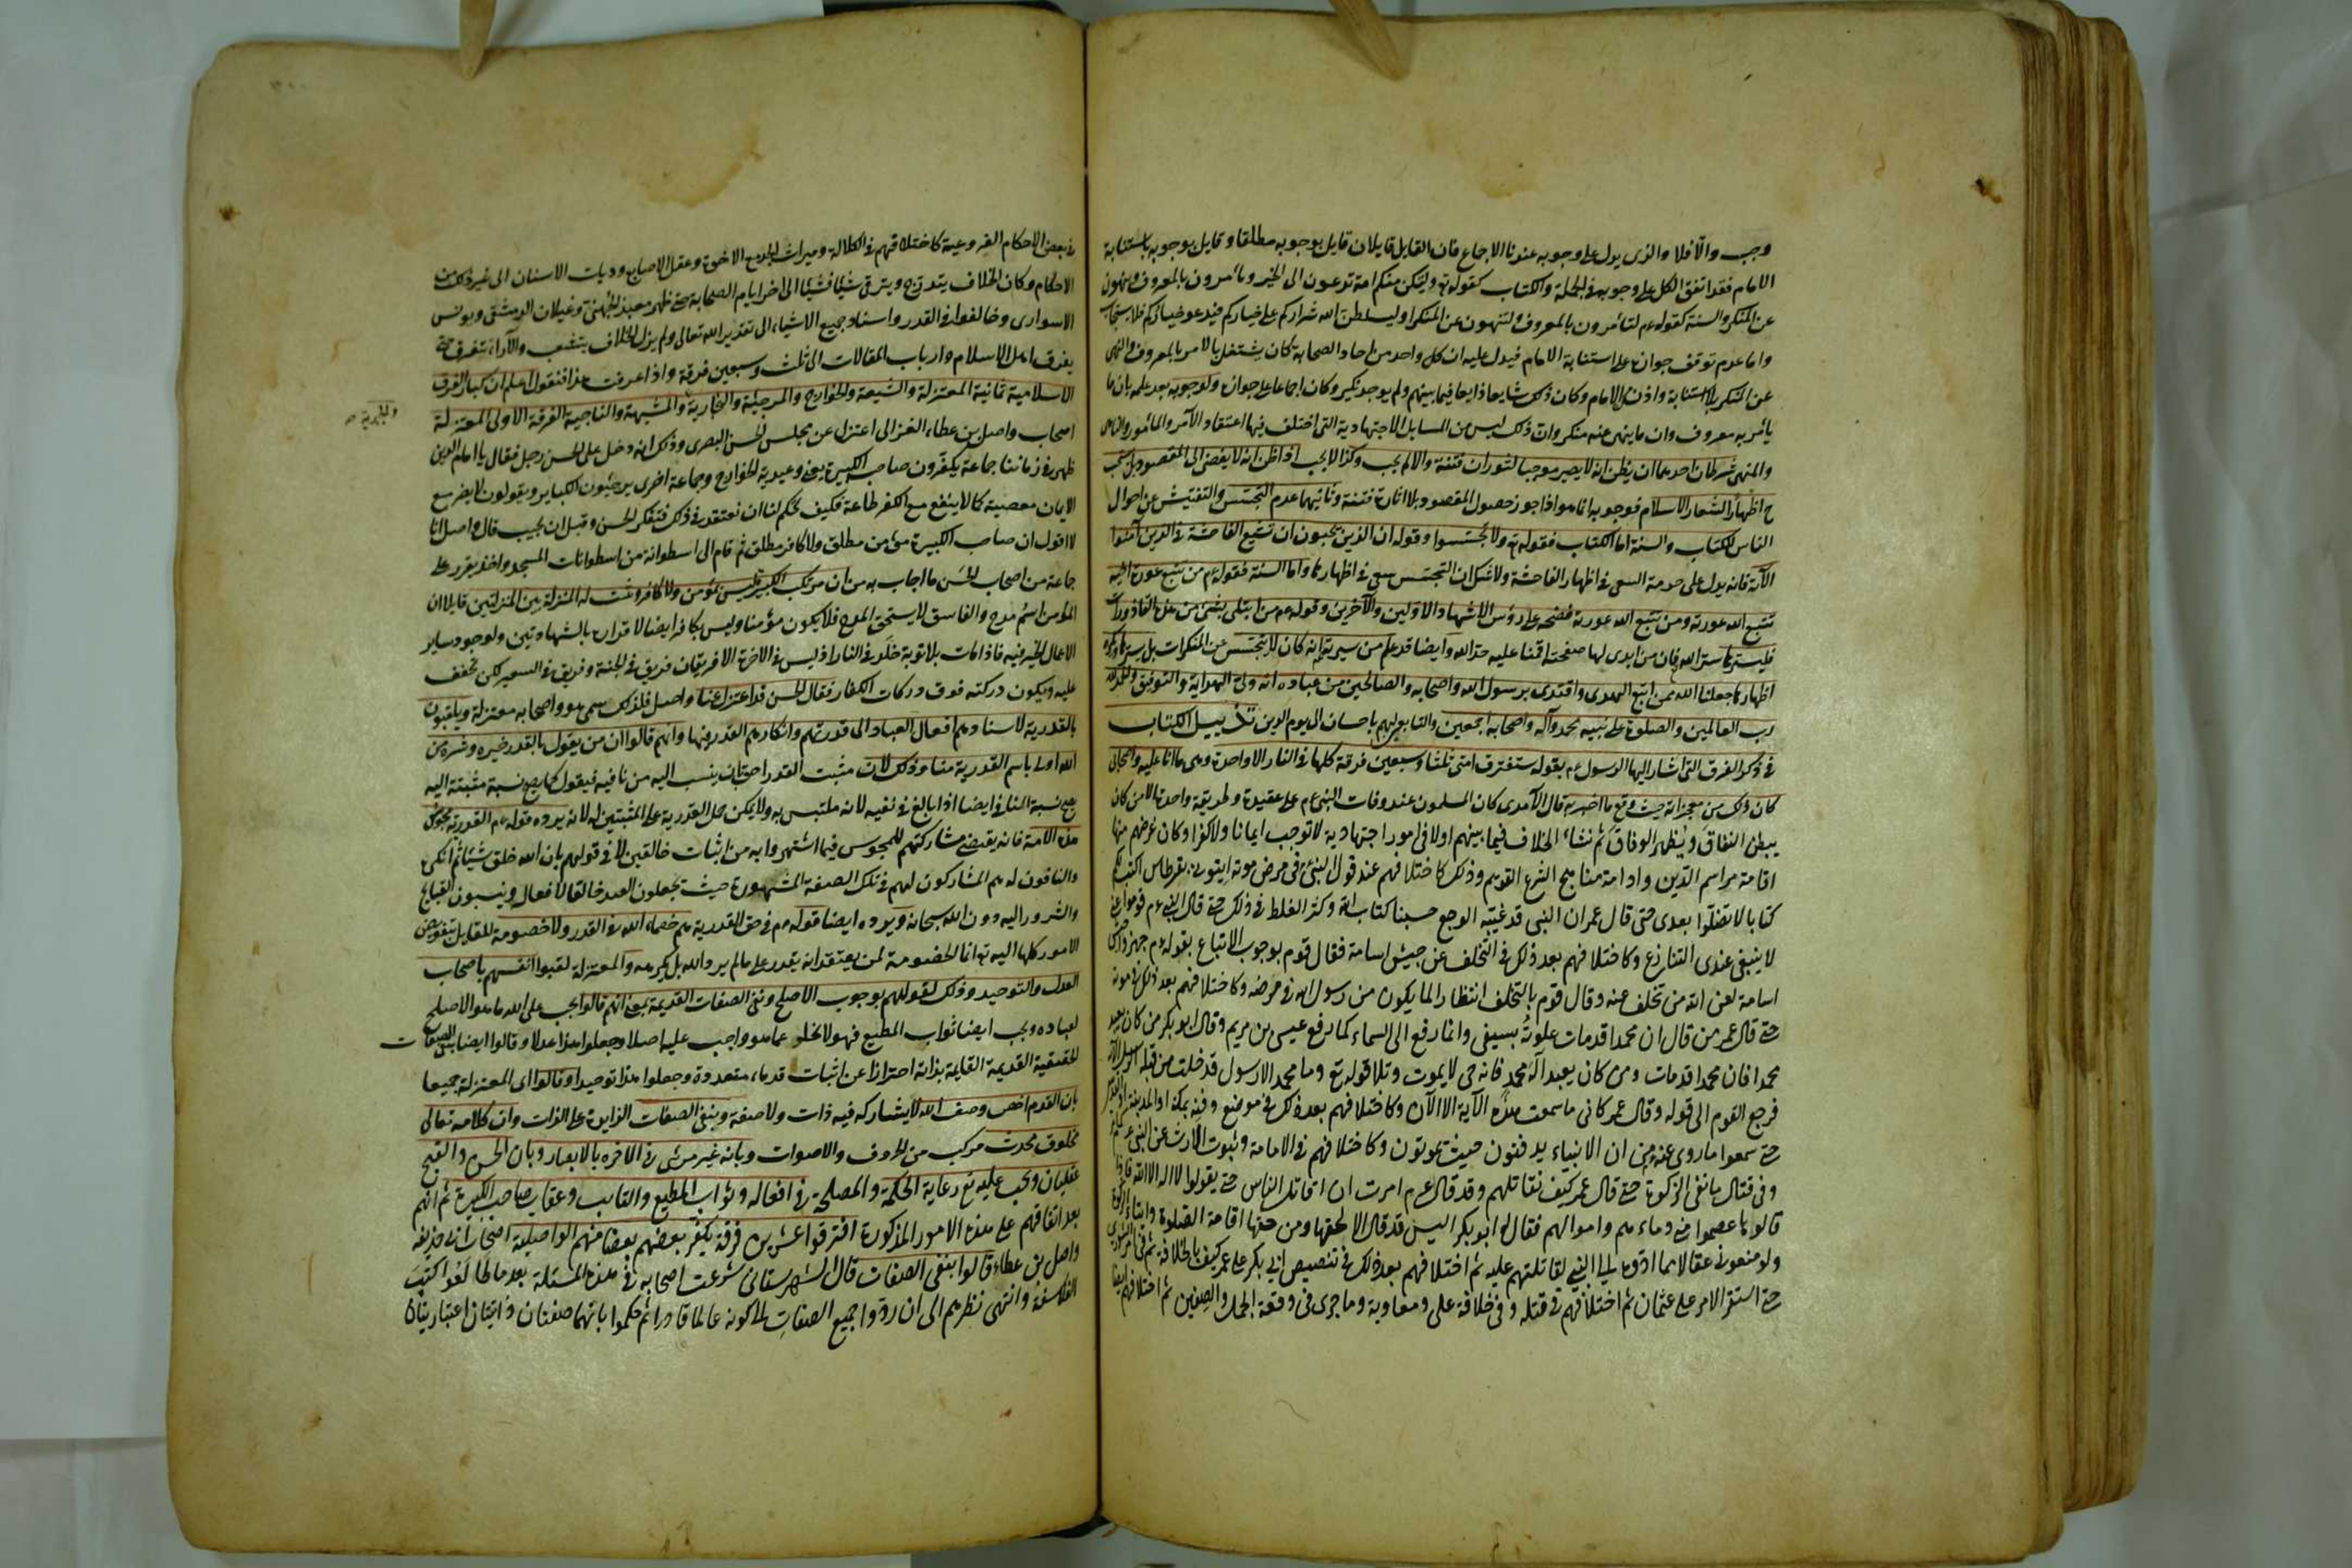 وجب والّا فلا والذى يدل على وجوبه عندنا الاجماع فان القايل قايلان قايل بوجوبه مطلقا وقايل بوجوبه باستنابة
الامام فقد اتفق الكل على وجوبه فى الجملة والكتاب كقوله تع ولتكن منكم امة تدعون الى الخير ويأمرون بالمعروف وينهون
عن المنكر والسنة كقوله عم لتأمرون بالمعروف ولتنهون عن المنكر او ليسلطن الله شراركم على خياركم فيدعو خياركم فلا يستجاب
واما عدم توقف جوازه على استنابة الامام فيدل عليه ان كل واحد من احاد الصحابة كان يشتغل بالامر بالمعروف والنهى
عن المنكر بلا استنابة واذن الامام وكان ذلك شايعا ذايعا فيما بينهم ولم يوجد نكير وكان اجماعا على جوازه ولوجوبه بعد علمه بان ما
يأمر به معروف وان ما ينهى عنه منكر وان ذلك ليس من المسايل الاجتهادية التى اختلف فيها اعتقاد الآمر والمأمور والناهى
والمنهى شرطان احدهما ان يظن انه لا يصير موجبا لثوران فتنة والا لم يجب وكذا لا يجب اذا ظن انه لا يفضى الى المقصود بل يستحب
ح اظهارا لشعار الاسلام فوجوبه انما هو اذا جوز حصول المقصود بلا اثارة فتنة وثانيهما عدم التجسّس والتفتيش عن احوال
الناس للكتاب والسنة اما الكتاب فقوله تع ولا تجسّسوا وقوله ان الذين يحبون ان تشيع الفاحشة فى الذين آمنوا
الآية فانه يدل على حرمة السعى فى اظهار الفاحشة ولا شك ان التجسّس سعى فى اظهارها واما السنة فقوله عم من تتبع عورة اخيه
تتبع الله عورته ومن تتبع الله عورته فضحه على رؤس الاشهاد الاولين والآخرين وقوله عم من ابتلى بشئ من هذه القاذورات
فليسترها ستر الله فان من ابدى لها صفحته اقمنا عليه حد الله وايضا قد علم من سيرته انه كان لا يتجسّس عن المنكرات بل يسترها ويكره
اظهارها جعلنا الله ممن اتبع الهدى واقتدى برسول الله واصحابه والصالحين من عباده انه ولى الهداية والتوفيق والحمد لله
رب العالمين والصلوة على نبيه محمد وآله واصحابه اجمعين والتابعين لهم باحسان الى يوم الدين تذييل الكتاب
فى ذكر الفرق التى اشار اليها الرسول عم بقوله ستفترق امتى ثلثا وسبعين فرقة كلها فى النار الا واحدة وهى ما انا عليه واصحابى
كان ذلك من معجزاته حيث وقع ما اخبر به قال الآمدى كان المسلمون عند وفات النبى عم على عقيدة وطريقة واحدة الا من كان
يبطن النفاق ويظهر الوفاق ثم نشاء الخلاف فيما بينهم اولا فى امور اجتهادية لا توجب ايمانا ولا كفرا وكان غرضهم منها
اقامة مراسم الدين وادامة مناهج الشرع القويم وذلك كاختلافهم عند قول النبى فى مرض موته ايتونى بقرطاس اكتب لكم
كتابا لا تضلّوا بعدى حتى قال عمر ان النبى قد غلبته الوجع حسبنا كتاب الله وكثر الغلط فى ذلك حتى قال النبى عم قوموا عنى
لا ينبغى عندى التنازع وكاختلافهم بعد ذلك فى التخلف عن جيش اسامة فقال قوم بوجوب الاتباع بقوله عم جهزوا جيش
اسامة لعن الله من تخلف عنه وقال قوم بالتخلف انتظارا لما يكون من رسول الله فى مرضه وكاختلافهم بعد ذلك فى موته
حتى قال عمر من قال ان محمدا قد مات علوته بسيفى وانما رفع الى السماء كما رفع عيسى بن مريم وقال ابو بكر من كان يعبد
محمدا فان محمدا قد مات ومن كان يعبد آله محمد فانه حى لا يموت وتلا قوله تع وما محمد الا رسول قد خلت من قبله الرسل الآية
فرجع القوم الى قوله وقال عمر كانى ما سمعت هذه الآية الا الآن وكاختلافهم بعد ذلك فى موضع دفنه بمكة او المدينة او القدس
حتى سمعوا ما روى عنه من ان الانبياء يدفنون حيث يموتون وكاختلافهم فى الامامة وثبوت الارث عن النبى عم
وفى قتال مانعى الزكوة حتى قال عمر كيف نقاتلهم وقد قال عم امرت ان اقاتل الناس حتى يقولوا لا اله الا الله فاذا
قالوها عصموا منى دماءهم واموالهم فقال له ابو بكر اليس قد قال الا بحقها ومن حقها اقامة الصلوة وايتاء الزكوة
ولو منعونى عقالا مما ادّوه الى النبى لقاتلتهم عليه ثم اختلافهم بعد ذلك فى تنصيص ابى بكر على عمر كيف بالخلافة ثم فى امر الشورى
حتى استقر الامر على عثمان ثم اختلافهم فى قتله وفى خلافة على ومعاوية وما جرى فى وقعة الجمل والصفين ثم اختلافهم ايضا
فى بعض الاحكام الفروعية كاختلافهم فى الكلالة وميراث الجد مع الاخوة وعقل الاصابع وديات الاسنان الى غير ذلك من
الاحكام وكان الخلاف يتدرج ويترقى شيئا فشيئا الى اخر ايام الصحابة حتى ظهر معبد الجهنى وغيلان الدمشقى ويونس
الاسوارى وخالفوا فى القدر واسناد جميع الاشياء الى تقدير الله تعالى ولم يزل الخلاف يتشعب والآراء تتفرق حتى
يفرق اهل الاسلام وارباب المقالات الى ثلث وسبعين فرقة واذا عرفت هذا فنقول اعلم ان كبار الفرق
الاسلامية ثمانية المعتزلة والشيعة والخوارج والمرجئة والنجارية والمشبهة والناجية الفرقة الاولى المعتزلة
والجبرية
اصحاب واصل بن عطاء الغزالى اعتزل عن مجلس الحسن البصرى وذلك انه دخل على الحسن رجل فقال يا امام الدين
ظهر فى زماننا جماعة يكفّرون صاحب الكبيرة يعنى وعيدية الخوارج وجماعة اخرى يرجئون الكباير ويقولون لا يضر مع
الايمان معصية كما لا ينفع مع الكفر طاعة فكيف تحكم لنا ان نعتقد فى ذلك فتفكر الحسن وقبل ان يجيب قال واصل انا
لا اقول ان صاحب الكبيرة مؤمن مطلق ولا كافر مطلق ثم قام الى اسطوانة من اسطوانات المسجد واخذ يقرر على
جماعة من اصحاب الحسن ما اجاب به من ان مرتكب الكبيرة ليس بمؤمن ولا كافر ويثبت له المنزلة بين المنزلتين قايلا ان
المؤمن اسم مدح والفاسق لا يستحق المدح فلا يكون مؤمنا وليس بكافر ايضا لاقراره بالشهادتين ولوجود ساير
الاعمال الخير فيه فاذا مات بلا توبة خلد فى النار اذ ليس فى الاخرة الا فريقان فريق فى الجنة وفريق فى السعير لكن تخفف
عليه ويكون دركته فوق دركات الكفار فقال الحسن قد اعتزل عنا واصل فلذلك سمى هو واصحابه معتزلة ويلقبون
بالقدرية لاسنادهم افعال العباد الى قدرتهم وانكارهم القدر فيها وانهم قالوا ان من يقول بالقدر خيره وشره من
الله اولى باسم القدرية منا وذلك لان مثبت القدر احق بان ينسب اليه من نافيه فيقول كما يصح نسبة مثبتة اليه
يصح نسبة النافى ايضا اذا بالغ فى نفيه لانه ملتبس به ولا يمكن حمل القدرية على المثبتين له لانه يرده قوله عم القدرية مجوس
هذه الامة فانه يقتضى مشاركتهم للمجوس فيما اشتهروا به من اثبات خالقين لا فى قولهم بان الله خلق شيئا ثم انكره
والنافون له هم المشاركون لهم فى تلك الصفة المشهورة حيث يجعلون العبد خالقا لافعاله وينسبون القبايح
والشرور اليه دون الله سبحانه ويرده ايضا قوله عم فى حق القدرية هم خصماء الله فى القدر ولا خصومة للقايل بتفويض
الامور كلها اليه تع انما الخصومة لمن يعتقد انه يقدر على ما لم يرد الله بل يكرهه والمعتزلة لقبوا انفسهم باصحاب
العدل والتوحيد وذلك لقولهم بوجوب الاصلح ونفى الصفات القديمة بمعنى انهم قالوا يجب على الله ما هو الاصلح
لعباده ويجب ايضا ثواب المطيع فهو لا يخل بما هو واجب عليه اصلا وجعلوا هذا عدلا وقالوا ايضا بنفى الصفات
الحقيقية القديمة القايمة بذاته احترازا عن اثبات قدماء متعددة وجعلوا هذا توحيدا وقالوا اى المعتزلة جميعا
بان القدم اخص وصف الله لا يشاركه فيه ذات ولا صفة وبنفى الصفات الزايدة على الذات وان كلامه تعالى
مخلوق محدث مركب من الحروف والاصوات وبانه غير مرئى فى الآخرة بالابصار وبان الحسن والقبح
عقليان ويجب عليه تع رعاية الحكمة والمصلحة فى افعاله وثواب المطيع والتايب وعقاب صاحب الكبيرة ثم انهم
بعد اتفاقهم على هذه الامور المذكورة افترقوا عشرين فرقة يكفّر بعضهم بعضا منهم الواصلية اصحاب ابى حذيفة
واصل بن عطاء قالوا بنفى الصفات قال الشهرستانى شرعت اصحابه فى هذه المسئلة بعد ما طالعوا كتب
الفلاسفة وانتهى نظرهم الى ان ردّوا جميع الصفات الى كونه عالما قادرا ثم حكموا بانهما صفتان ذاتيتان اعتباريتان